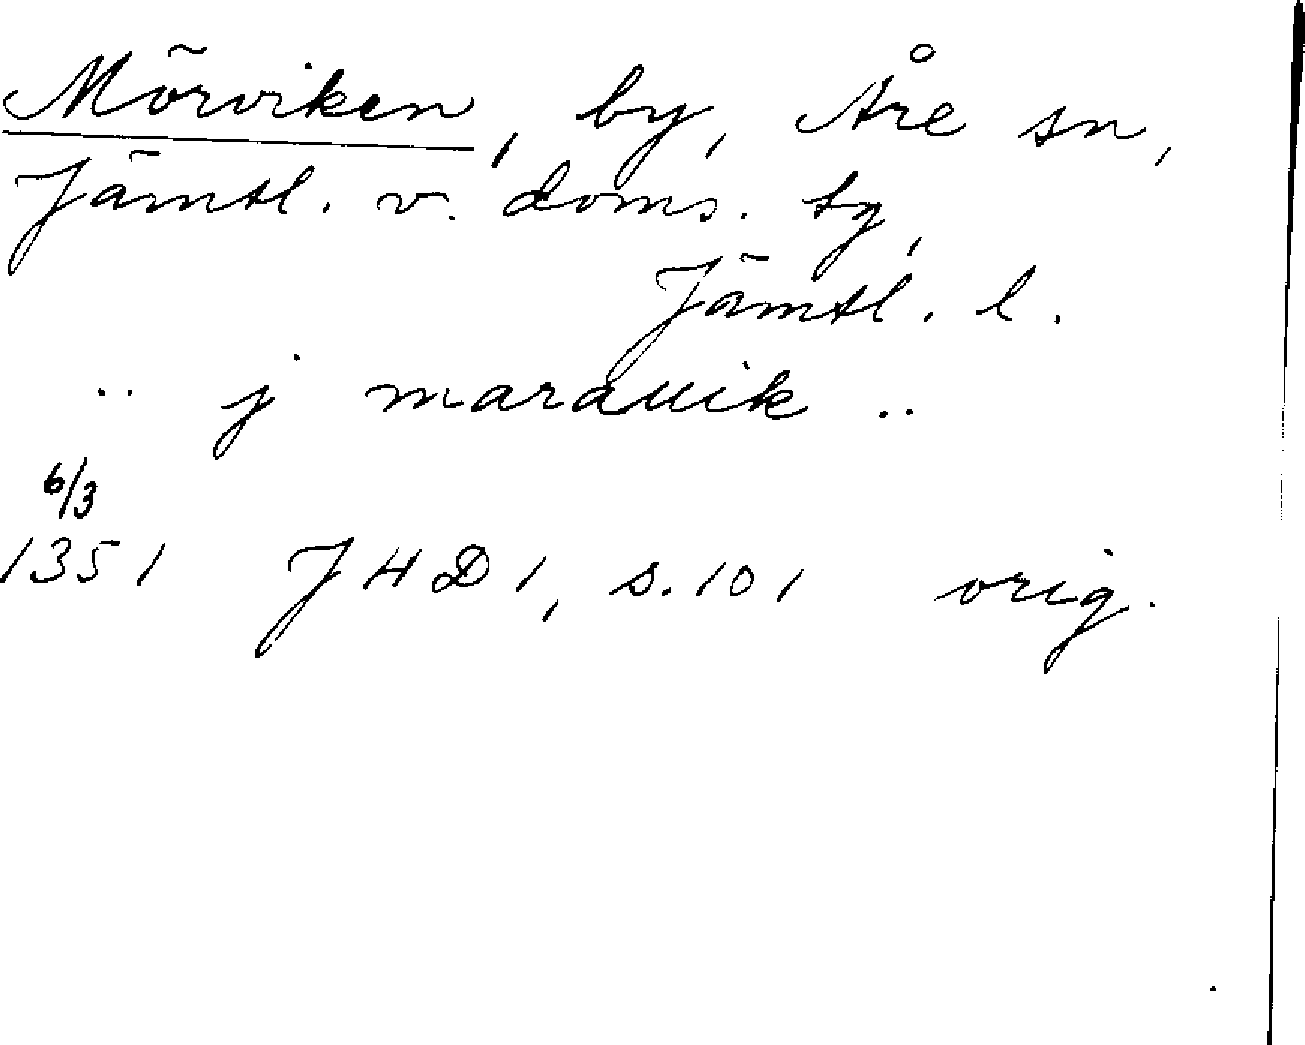 Mörviken, by, Åre sn,
Jämtl. v. doms. tg,
Jämtl. l.
.. j marauik ..
6/3
1351 JHD 1, s. 101 orig.